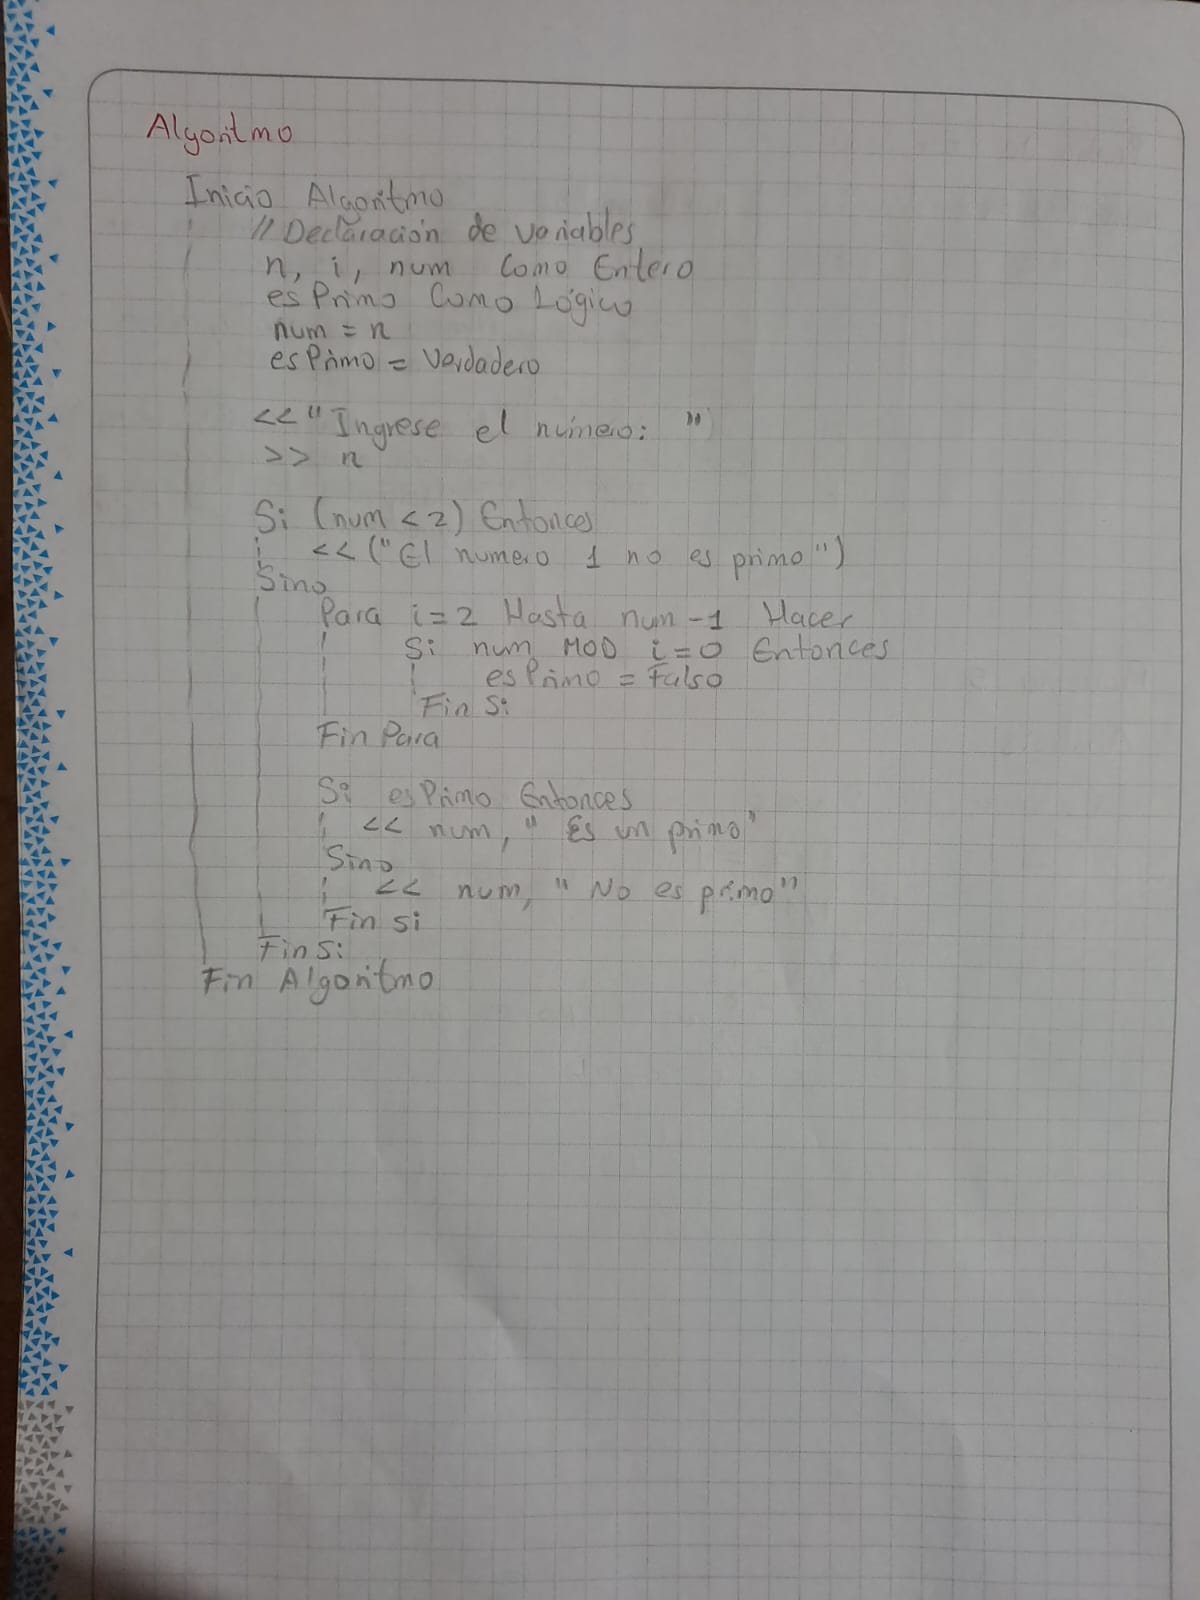 Algoritmo
Inicio Algoritmo
// Declaración de variables
n, i, num Como Entero
esPrimo Como Lógico
num = n
esPrimo = Verdadero
<< "Ingrese el número: "
>> n
Si (num < 2) Entonces
<< ("El numero 1 no es primo")
Sino
Para i = 2 Hasta num - 1 Hacer
Si num MOD i = 0 Entonces
esPrimo = Falso
Fin Si
Fin Para
Si esPrimo Entonces
<< num, " Es un primo"
Sino
<< num, " No es primo"
Fin si
Fin Si
Fin Algoritmo